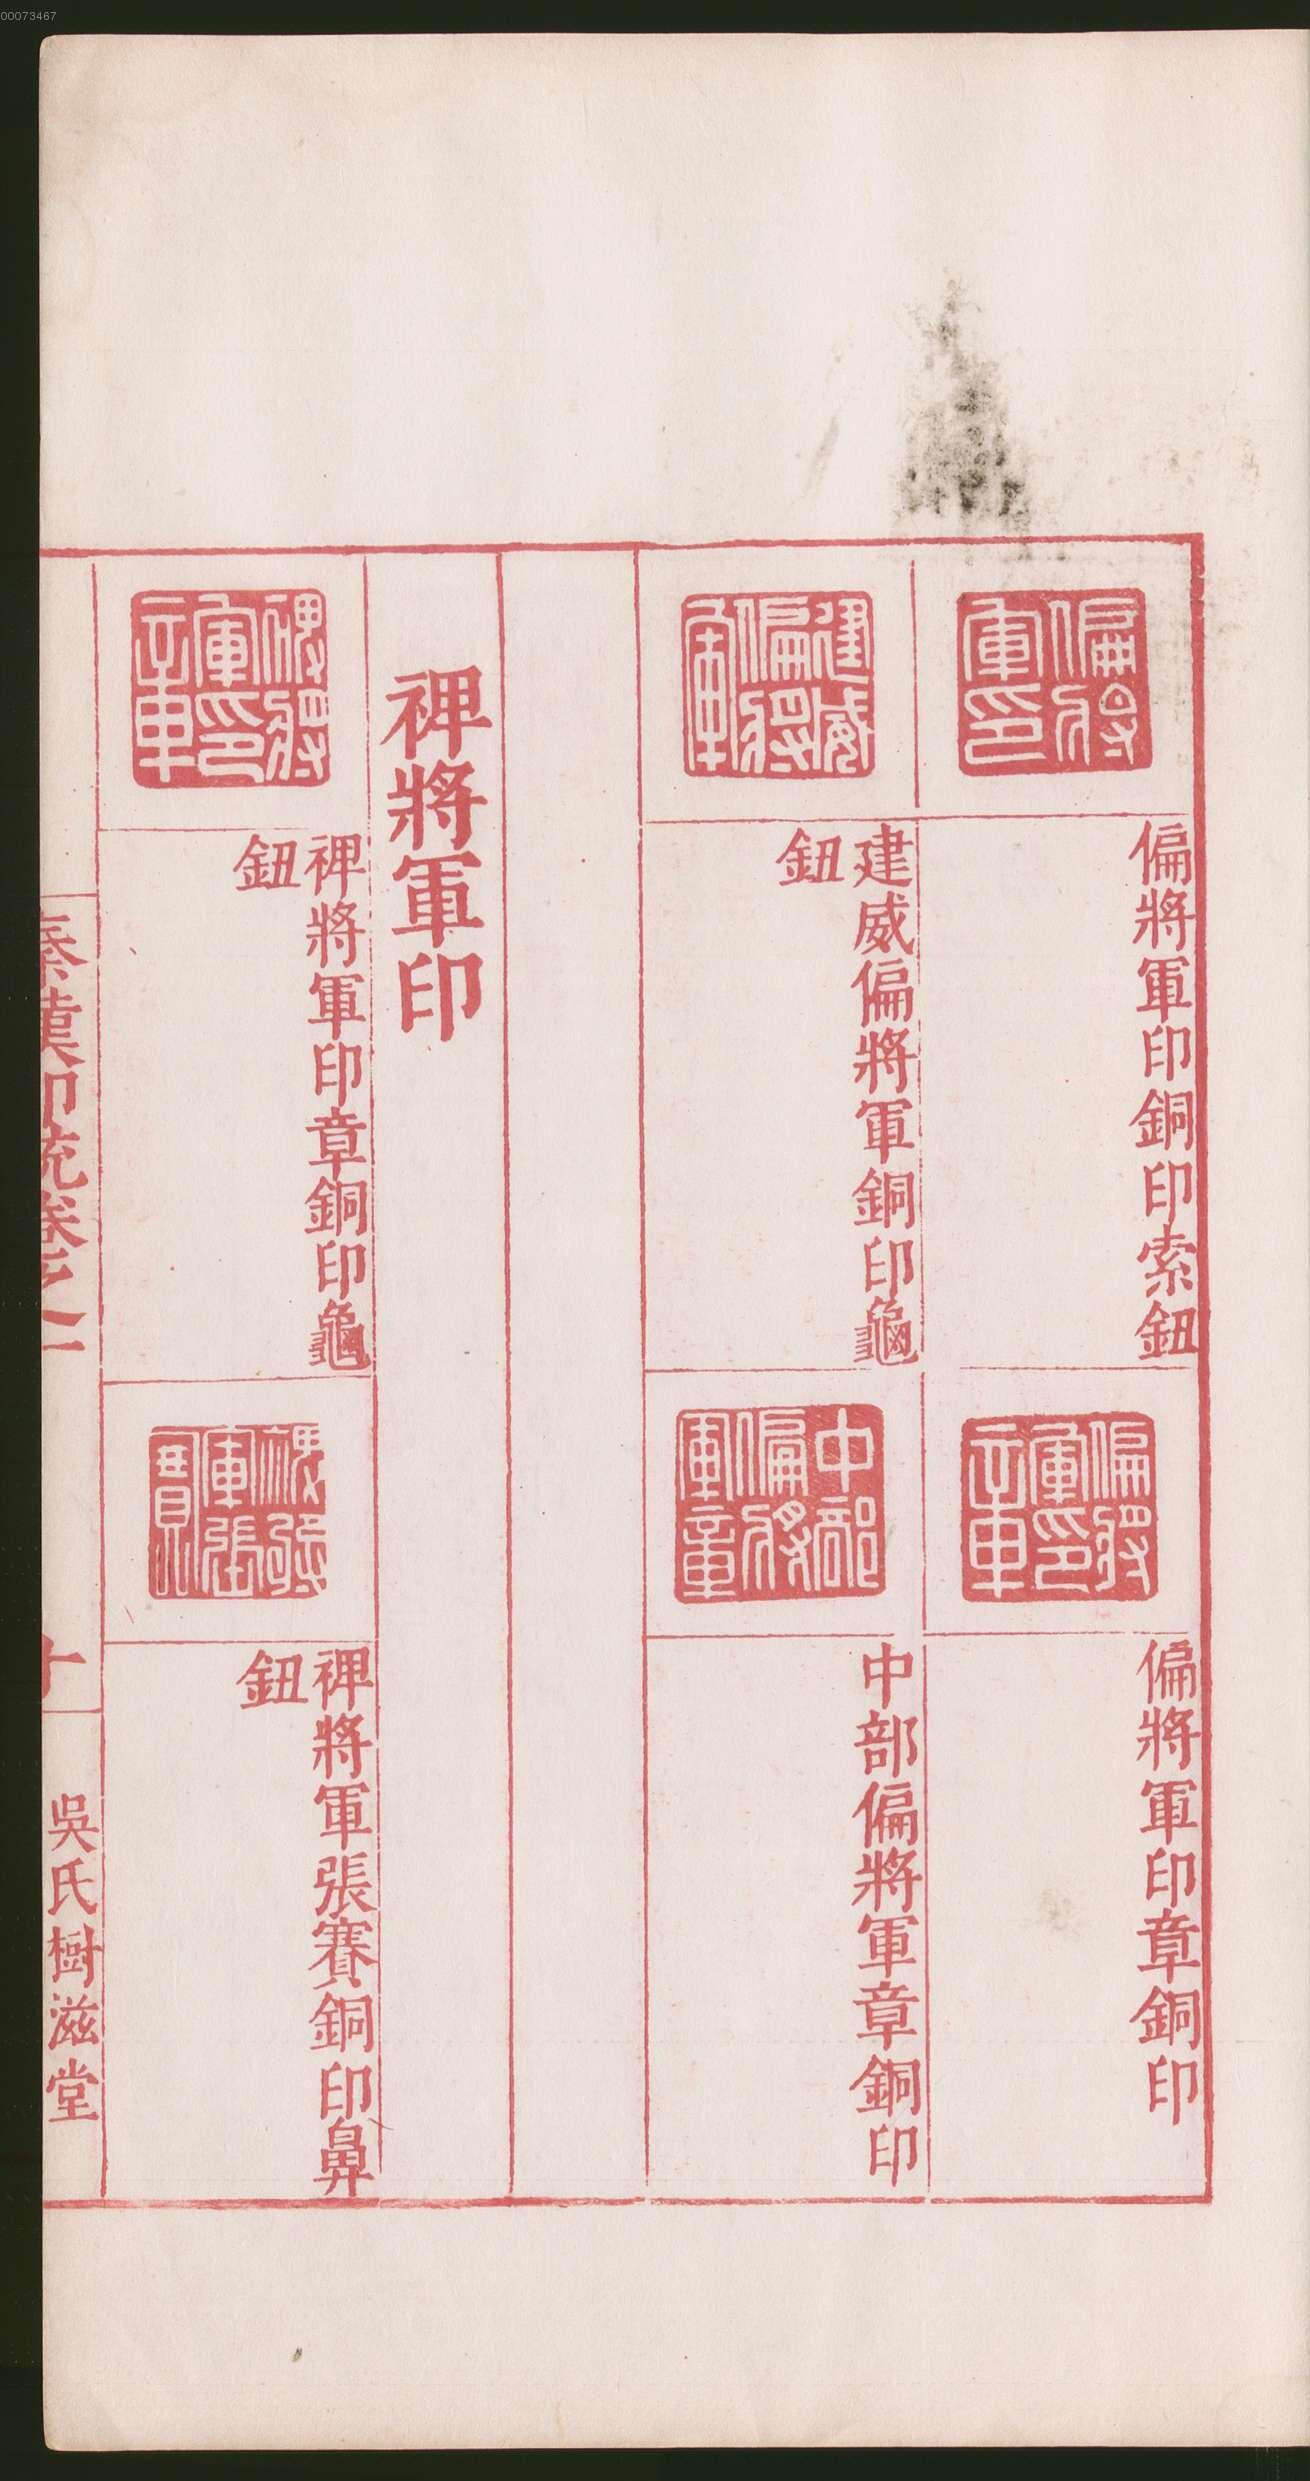 00073467
偏將軍印
偏將軍印銅印索鈕
偏將軍印章
偏將軍印章銅印
建威偏將軍
建威偏將軍銅印龜
鈕
中部偏將軍章
中部偏將軍章銅印
裨將軍印
裨將軍印章
裨將軍印章銅印龜
鈕
裨將軍張賽
裨將軍張賽銅印鼻
鈕
秦漢印統卷之二
十
吳氏樹滋堂